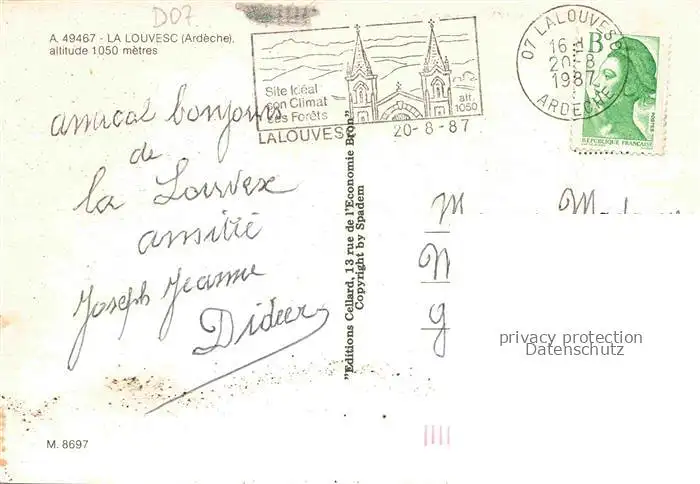 D07
A. 49467 - LA LOUVESC (Ardèche).
altitude 1050 mètres
Site Idéal
son Climat
ses Forêts
alt.
1050
LALOUVESC 20-8-87
07 LALOUVESC
16 H
20-8
1987
ARDECHE
B
POSTES
REPUBLIQUE FRANÇAISE
amical bonjour
de
la Louvex
amitié
Joseph Jeanne
Didier
"Editions Cellard, 13 rue de l'Economie Bron"
Copyright by Spadem
M
privacy protection
Datenschutz
M. 8697